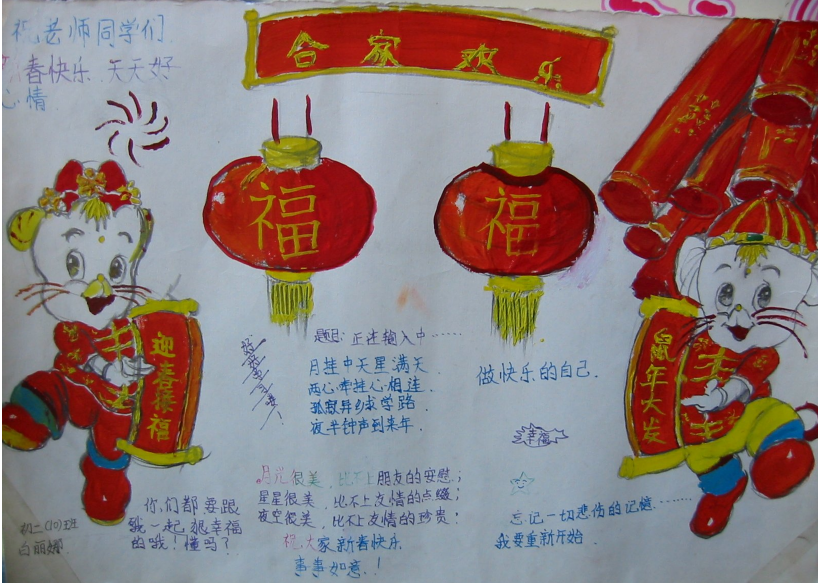 祝老师同学们
春快乐 天天好
心情
合家欢乐
福
福
迎春接福
鼠年大发
题目: 正在输入中……
月挂中天星满天.
两心牵挂心相连.
孤寂异乡求学路.
夜半钟声到来年.
做快乐的自己.
幸福
月光很美, 比不上朋友的安慰;
星星很美, 比不上友情的点缀;
夜空很美, 比不上友情的珍贵:
祝大家新春快乐
事事如意.!
忘记一切悲伤的记忆………
我要重新开始.
你们都要跟
我一起很幸福
的哦! 懂吗?
初二(10)班
白丽娜